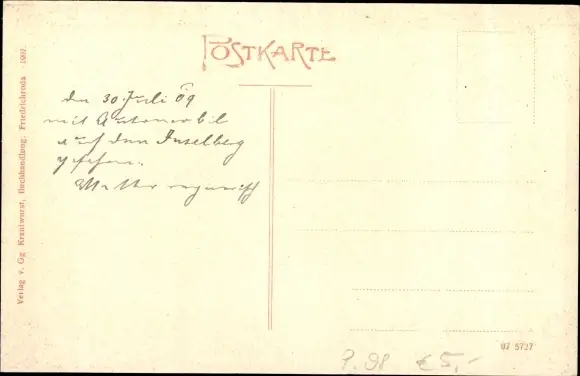 POSTKARTE
den 30 Juli 09
mit Automobil
auf den Inselberg
gefahren.
Verlag v. Gg Krautwurst, Buchhandlung, Friedrichroda 1907.
07 5727
P. 98 €5,-